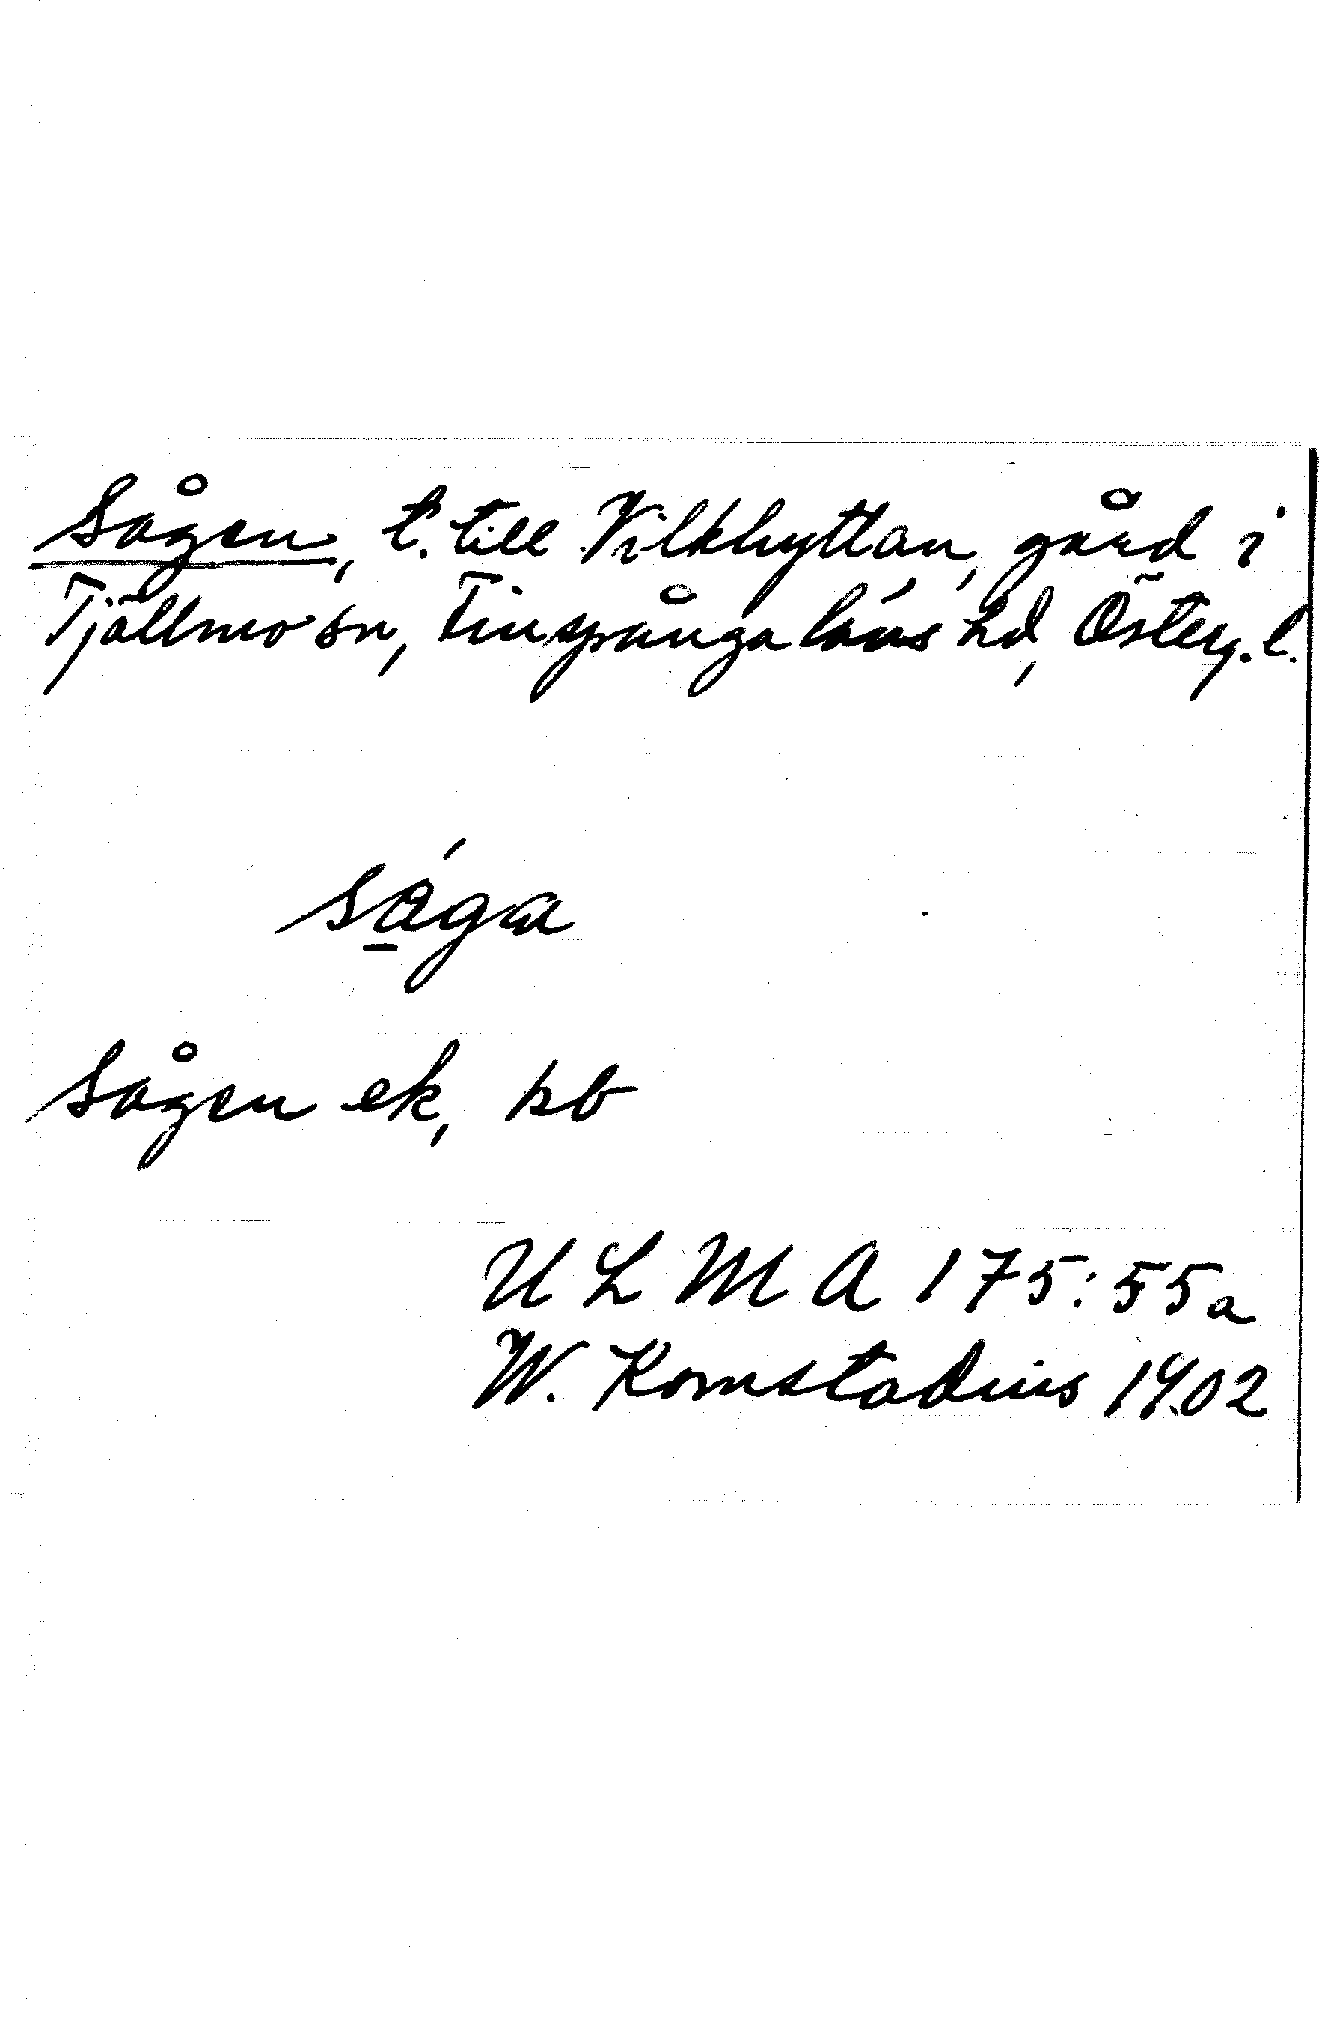 Sågen, t. till Vilkhyttan, gård i
Tjällmo sn, Finspånga läns hd, Österg. l.
såga
Sågen ek, kb
U L M A 175:55a
W. Komstadius 1902